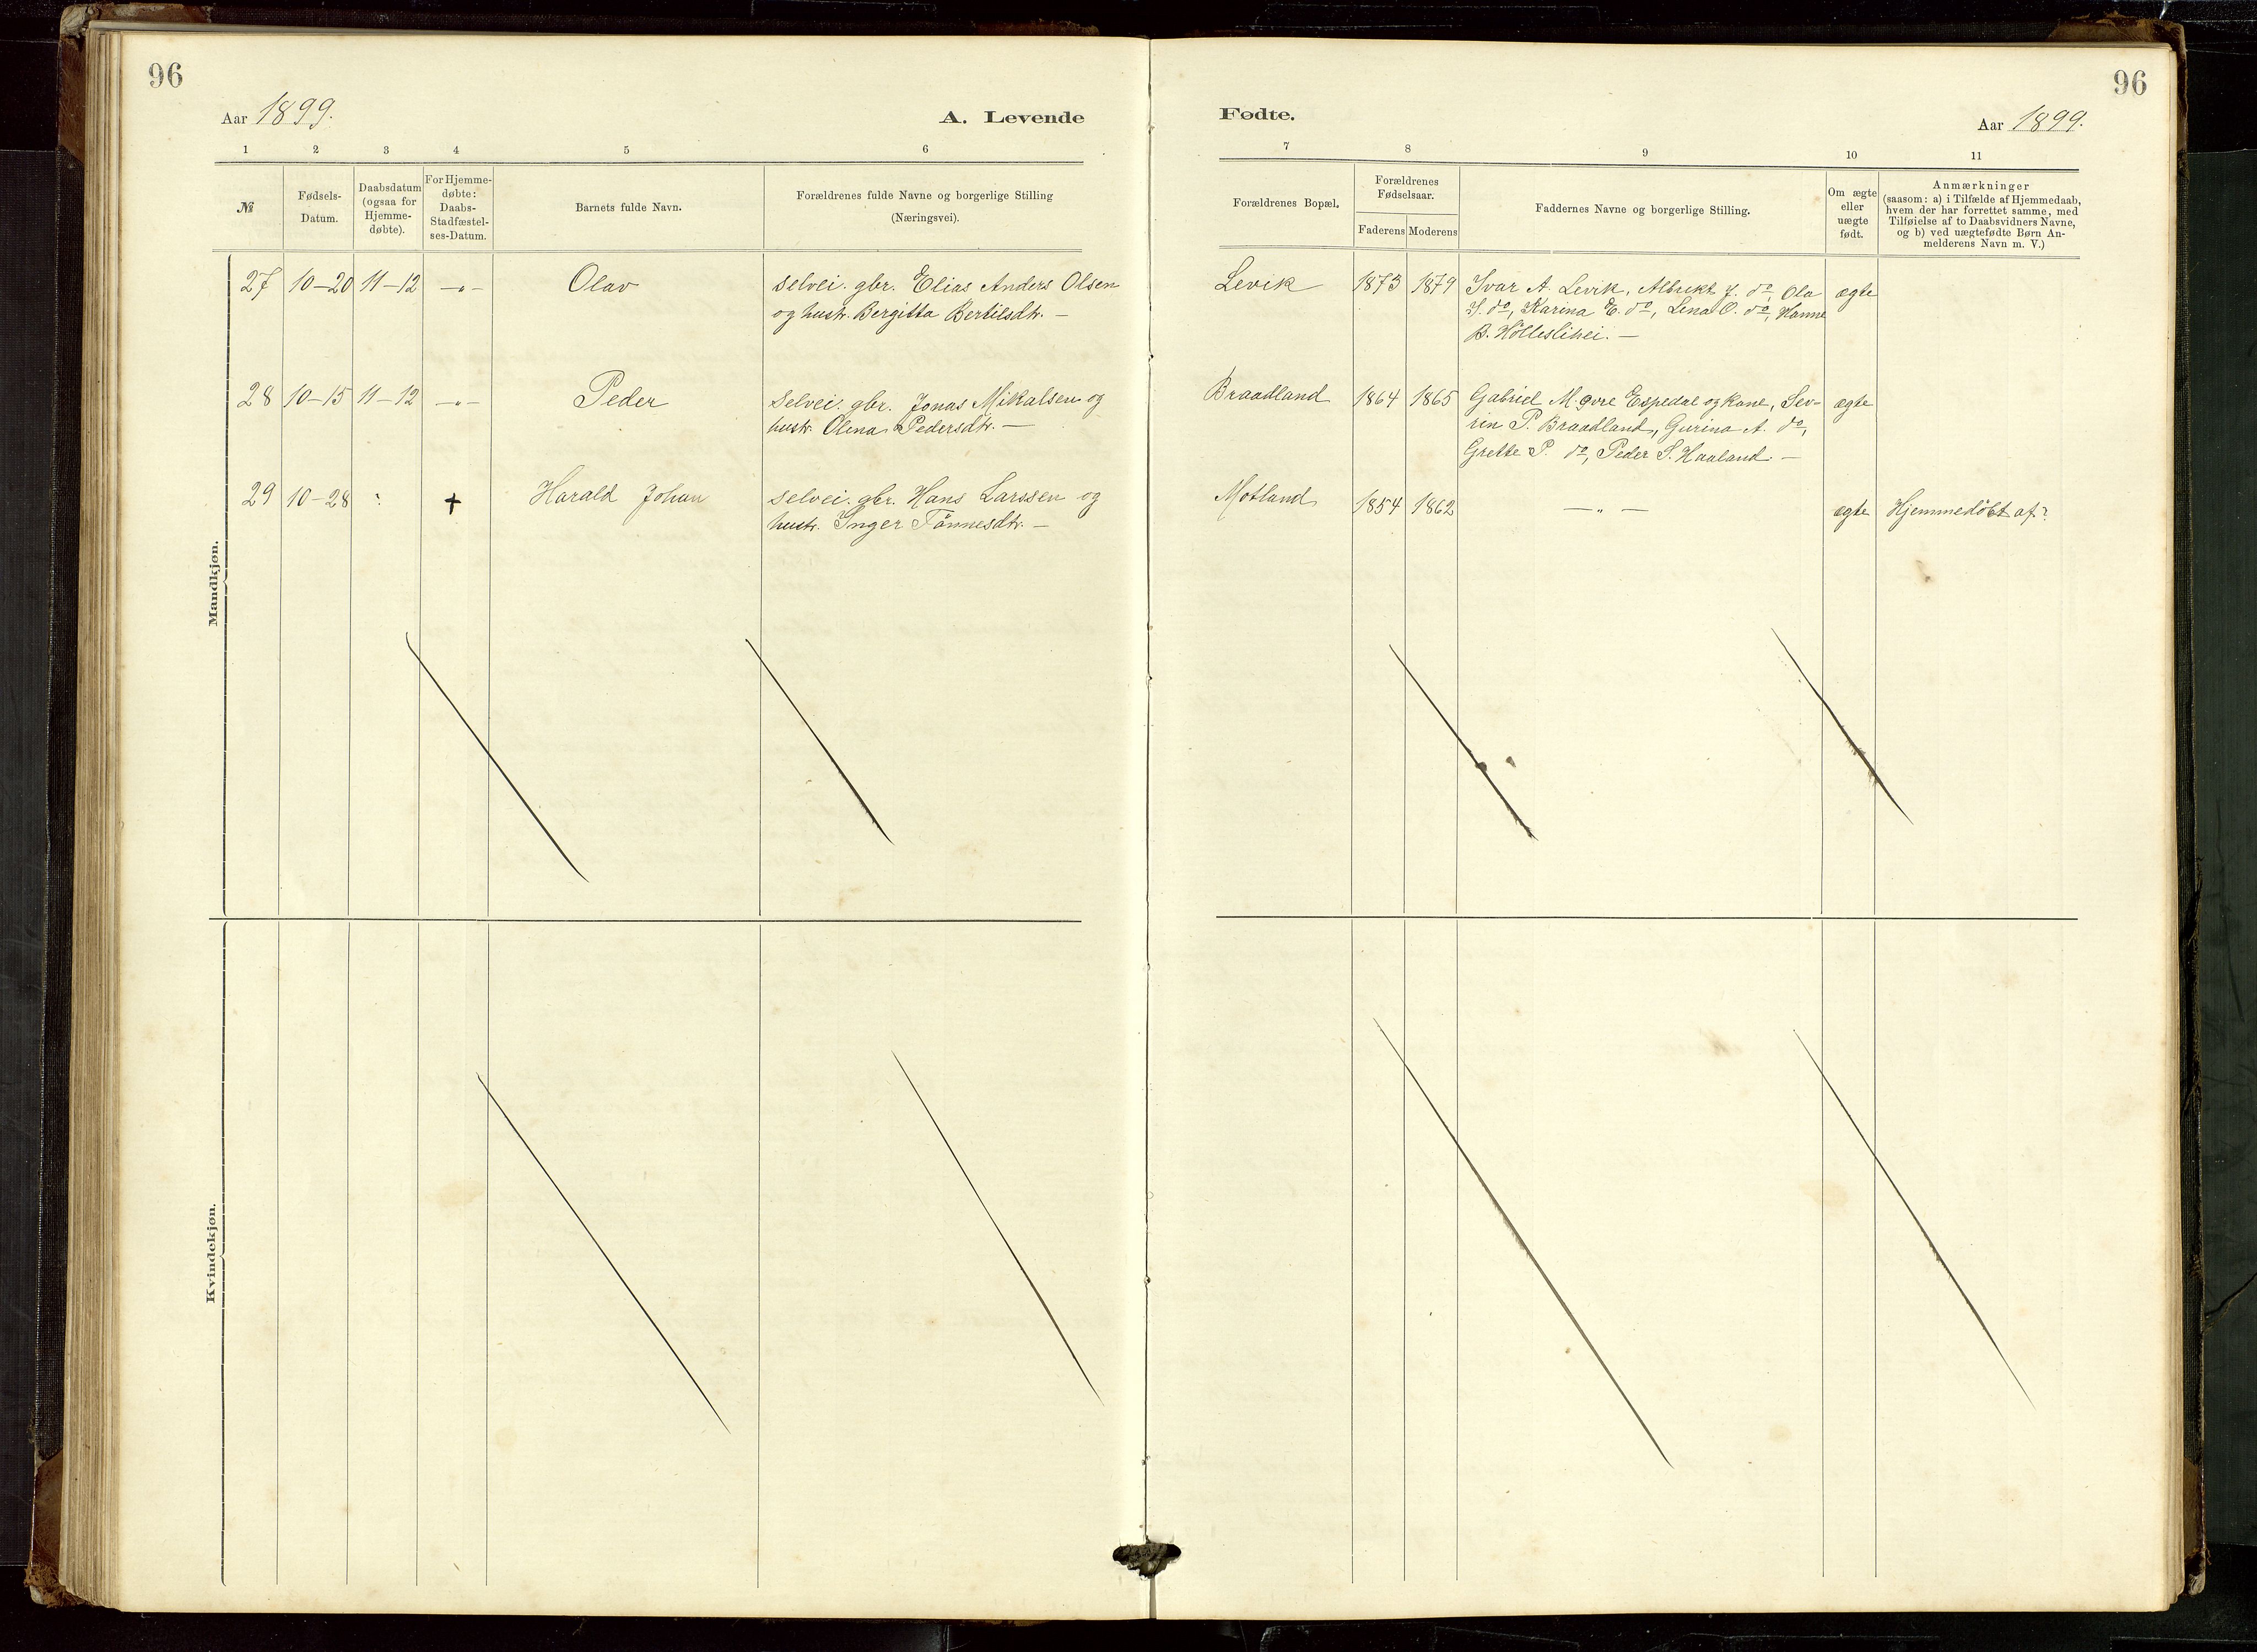 96
Aar 1899.
A. Levende
1 2 3 4 5 6
№
Fødsels-
Datum.
Daabsdatum
(ogsaa for
Hjemme-
døbte).
For Hjemme-
døbte:
Daabs-
Stadfæstel-
ses-Datum.
Barnets fulde Navn.
Forældrenes fulde Navne og borgerlige Stilling
(Næringsvei).
Mandkjøn.
27 10-20 11-12 -"- Olav selvei. gbr. Elias Anders Olsen
og hustr. Bergitta Bertilsdtr. -
28 10-15 11-12 -"- Peder selvei. gbr. Jonas Mikalsen og
hustr. Olena Pedersdtr. -
29 10-28 : + Harald Johan selvei. gbr. Hans Larssen og
hustr. Inger Tönnesdtr. -
Kvindekjøn.
96
Fødte.
Aar 1899.
7 8 9 10 11
Forældrenes Bopæl.
Forældrenes
Fødselsaar.
Faderens Moderens
Faddernes Navne og borgerlige Stilling.
Om ægte
eller
uægte
født.
Anmærkninger
(saasom: a) i Tilfælde af Hjemmedaab,
hvem der har forrettet samme, med
Tilføielse af to Daabsvidners Navne,
og b) ved uægtefødte Børn An-
melderens Navn m. V.)
Levik 1873 1879 Ivar A. Levik, Albrekt J. do, Ola ægte
I. do, Karina E. do, Lena O. do, Hanne
B. Hölleslihei. -
Braadland 1864 1865 Gabriel M. øvre Espedal og kone, Sev- ægte
rin P. Braadland, Gurina A. do,
Grette P. do, Peder S. Haaland. -
Motland 1854 1862 -"- ægte Hjemmedöbt af?